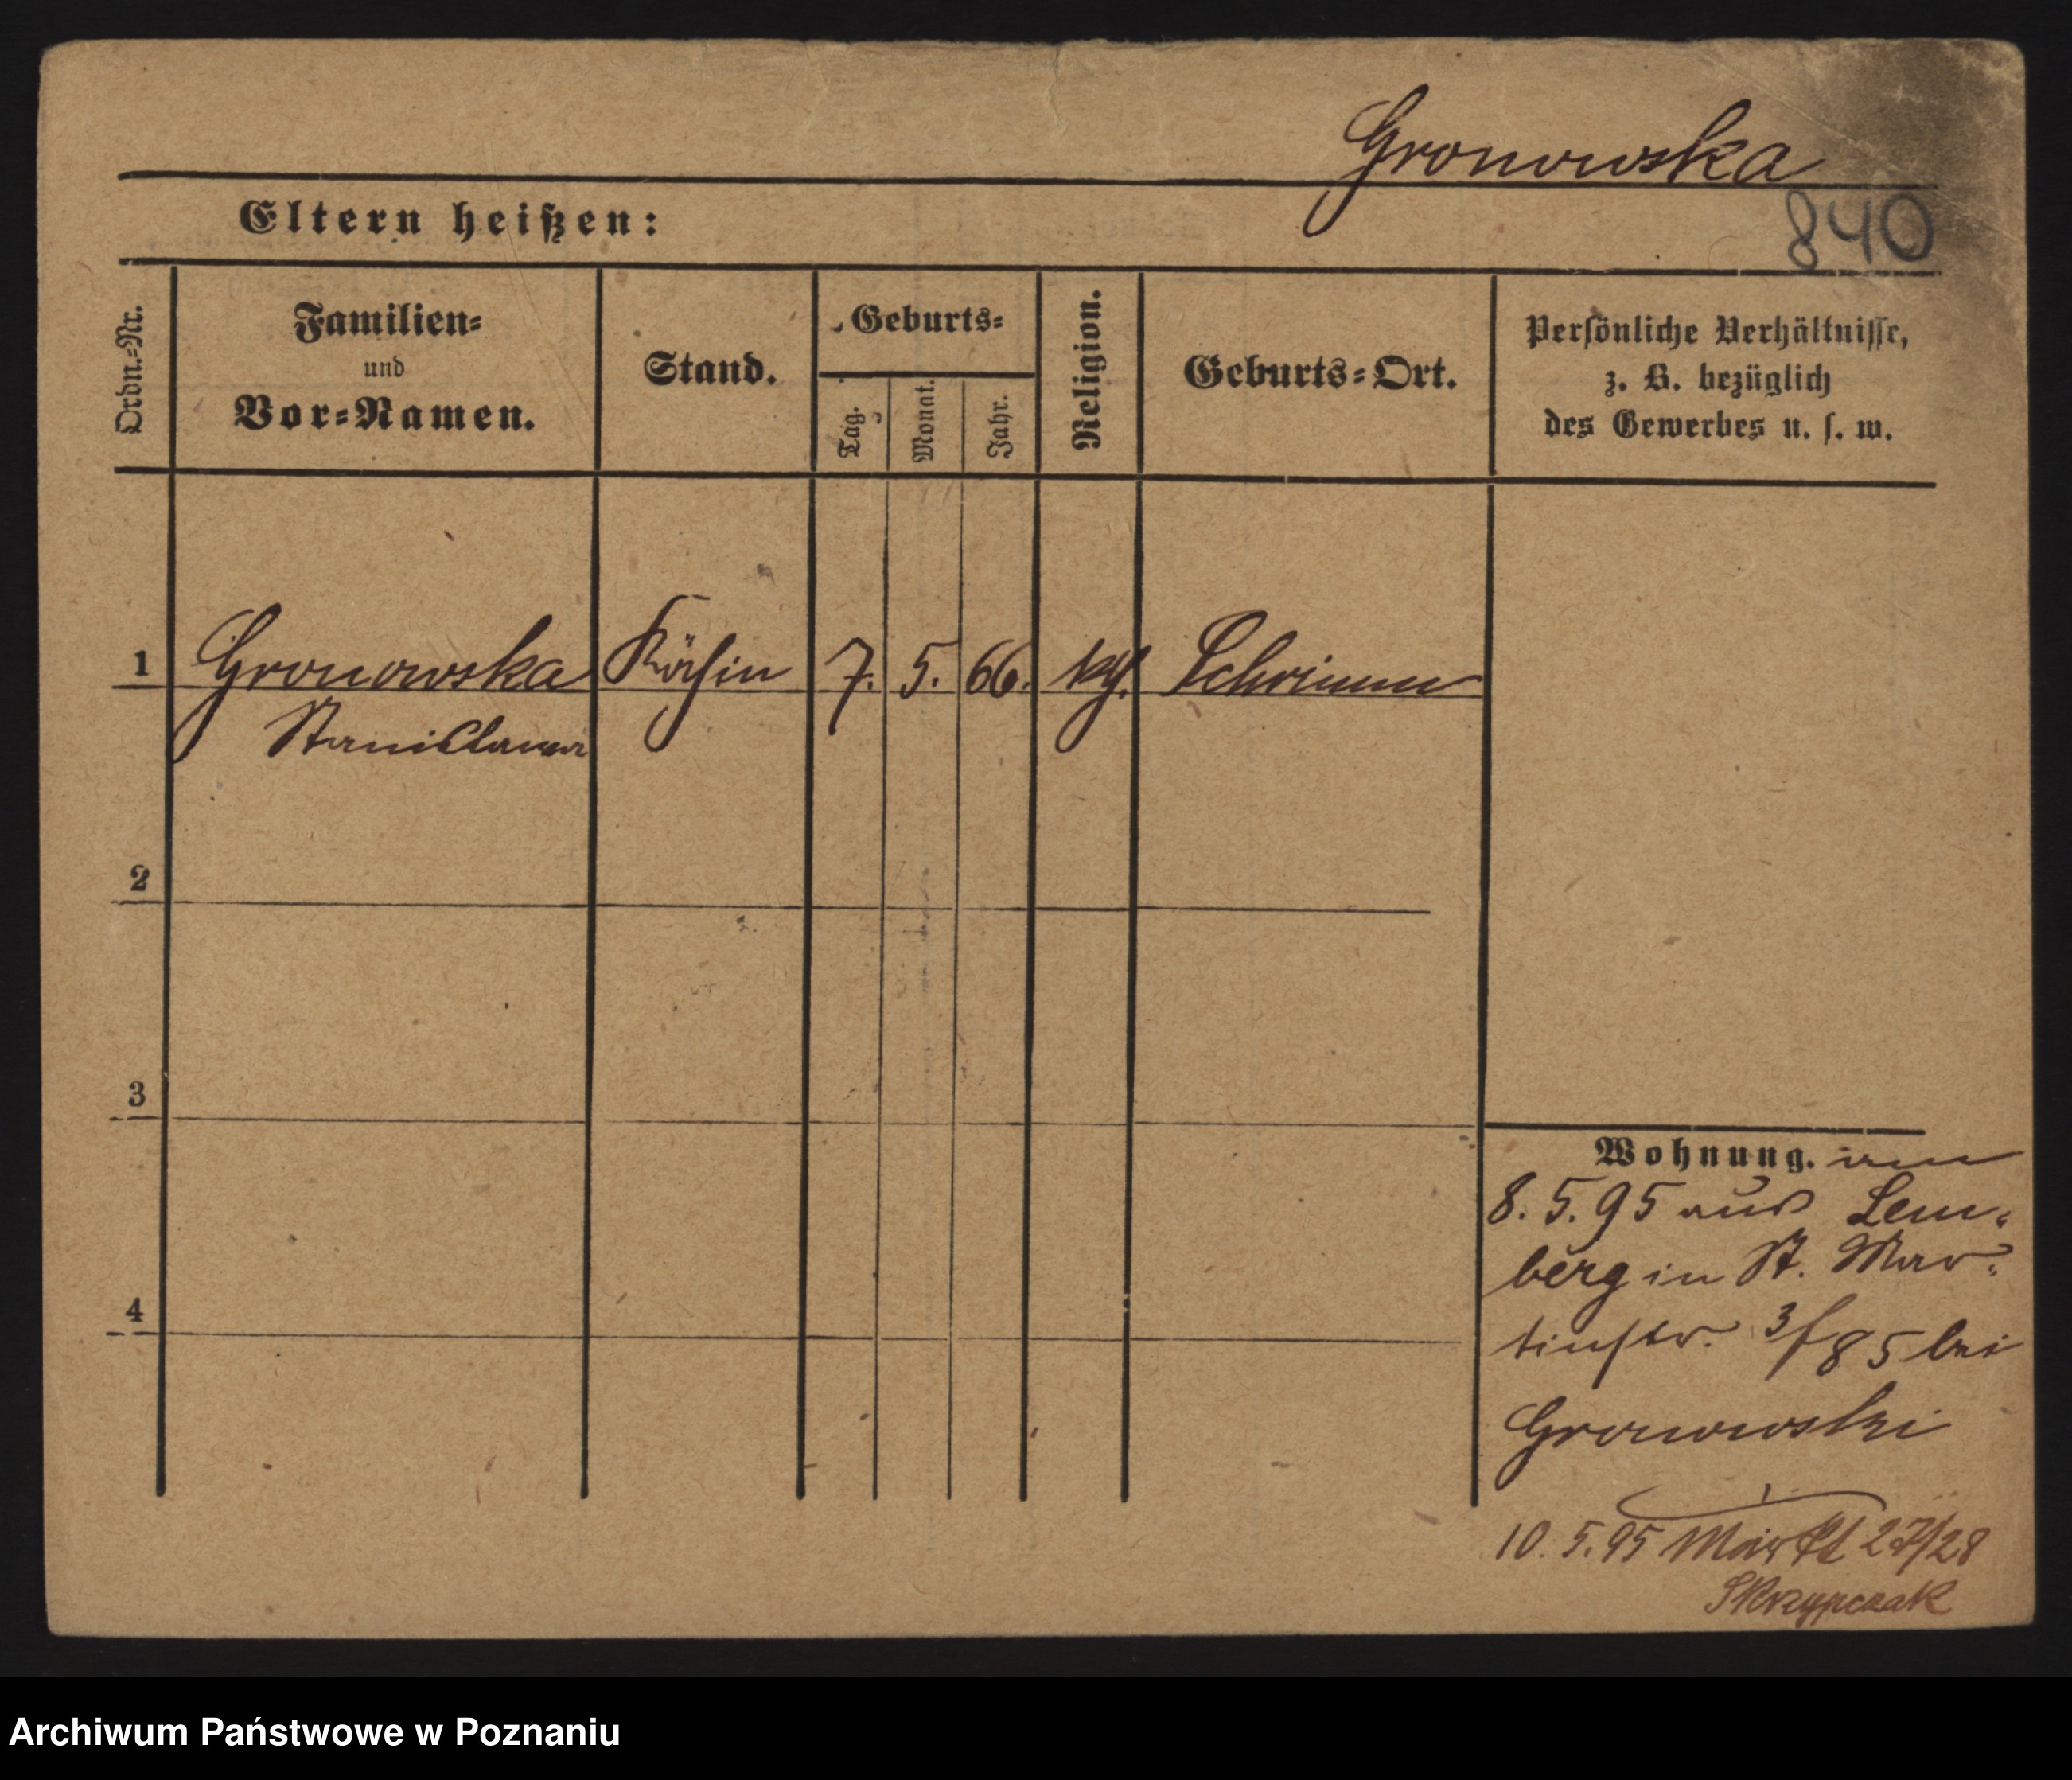 Gronowska
840
Eltern heißen:
Ordn.-Nr.
Familien-
und
Vor-Namen.
Stand.
Geburts-
Tag.
Monat.
Jahr.
Religion.
Geburts-Ort.
Persönliche Verhältnisse,
z. B. bezüglich
des Gewerbes u. s. w.
1 Gronowska Köchin 7. 5. 66. kth. Schrimm
Stanislawa
2
3
4
Wohnung. am
8. 5. 95 aus Lem-
berg in St. Mar-
tinstr. 3/85 bei
Gronowski
10. 5. 95 Markt 27/28
Skrzypczak
Archiwum Państwowe w Poznaniu